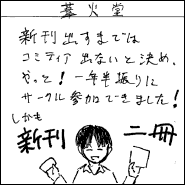 葦火堂
新刊出すまでは
コミティア出ないと決め、
やっと！一年半振りに
サークル参加できました！
しかも
新刊 二冊